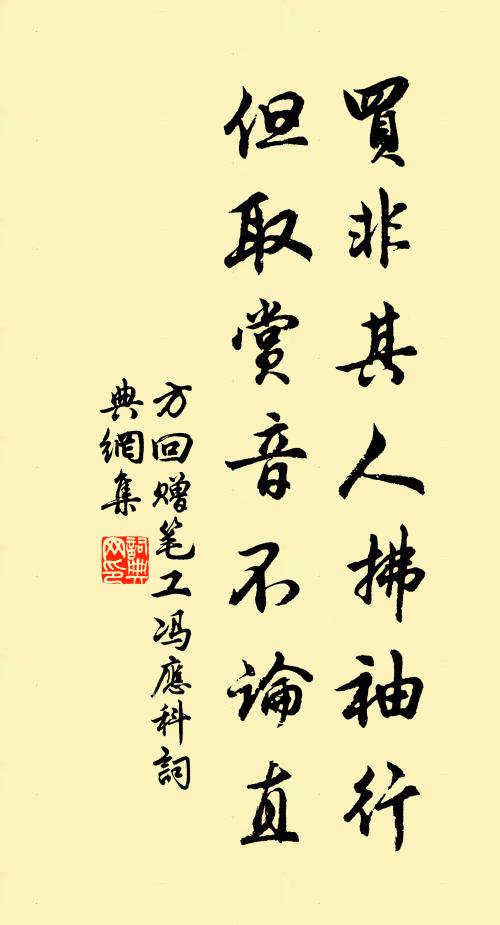 買非其人拂袖行
但取賞音不論直
方回赠笔工冯應科詞
典網集
詞典网印